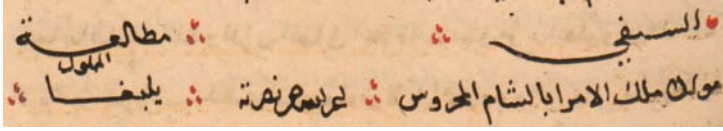 السيفي مطالعة
المملوك
مولانا ملك الامرا بالشام المحروس عز نصره يلبغا